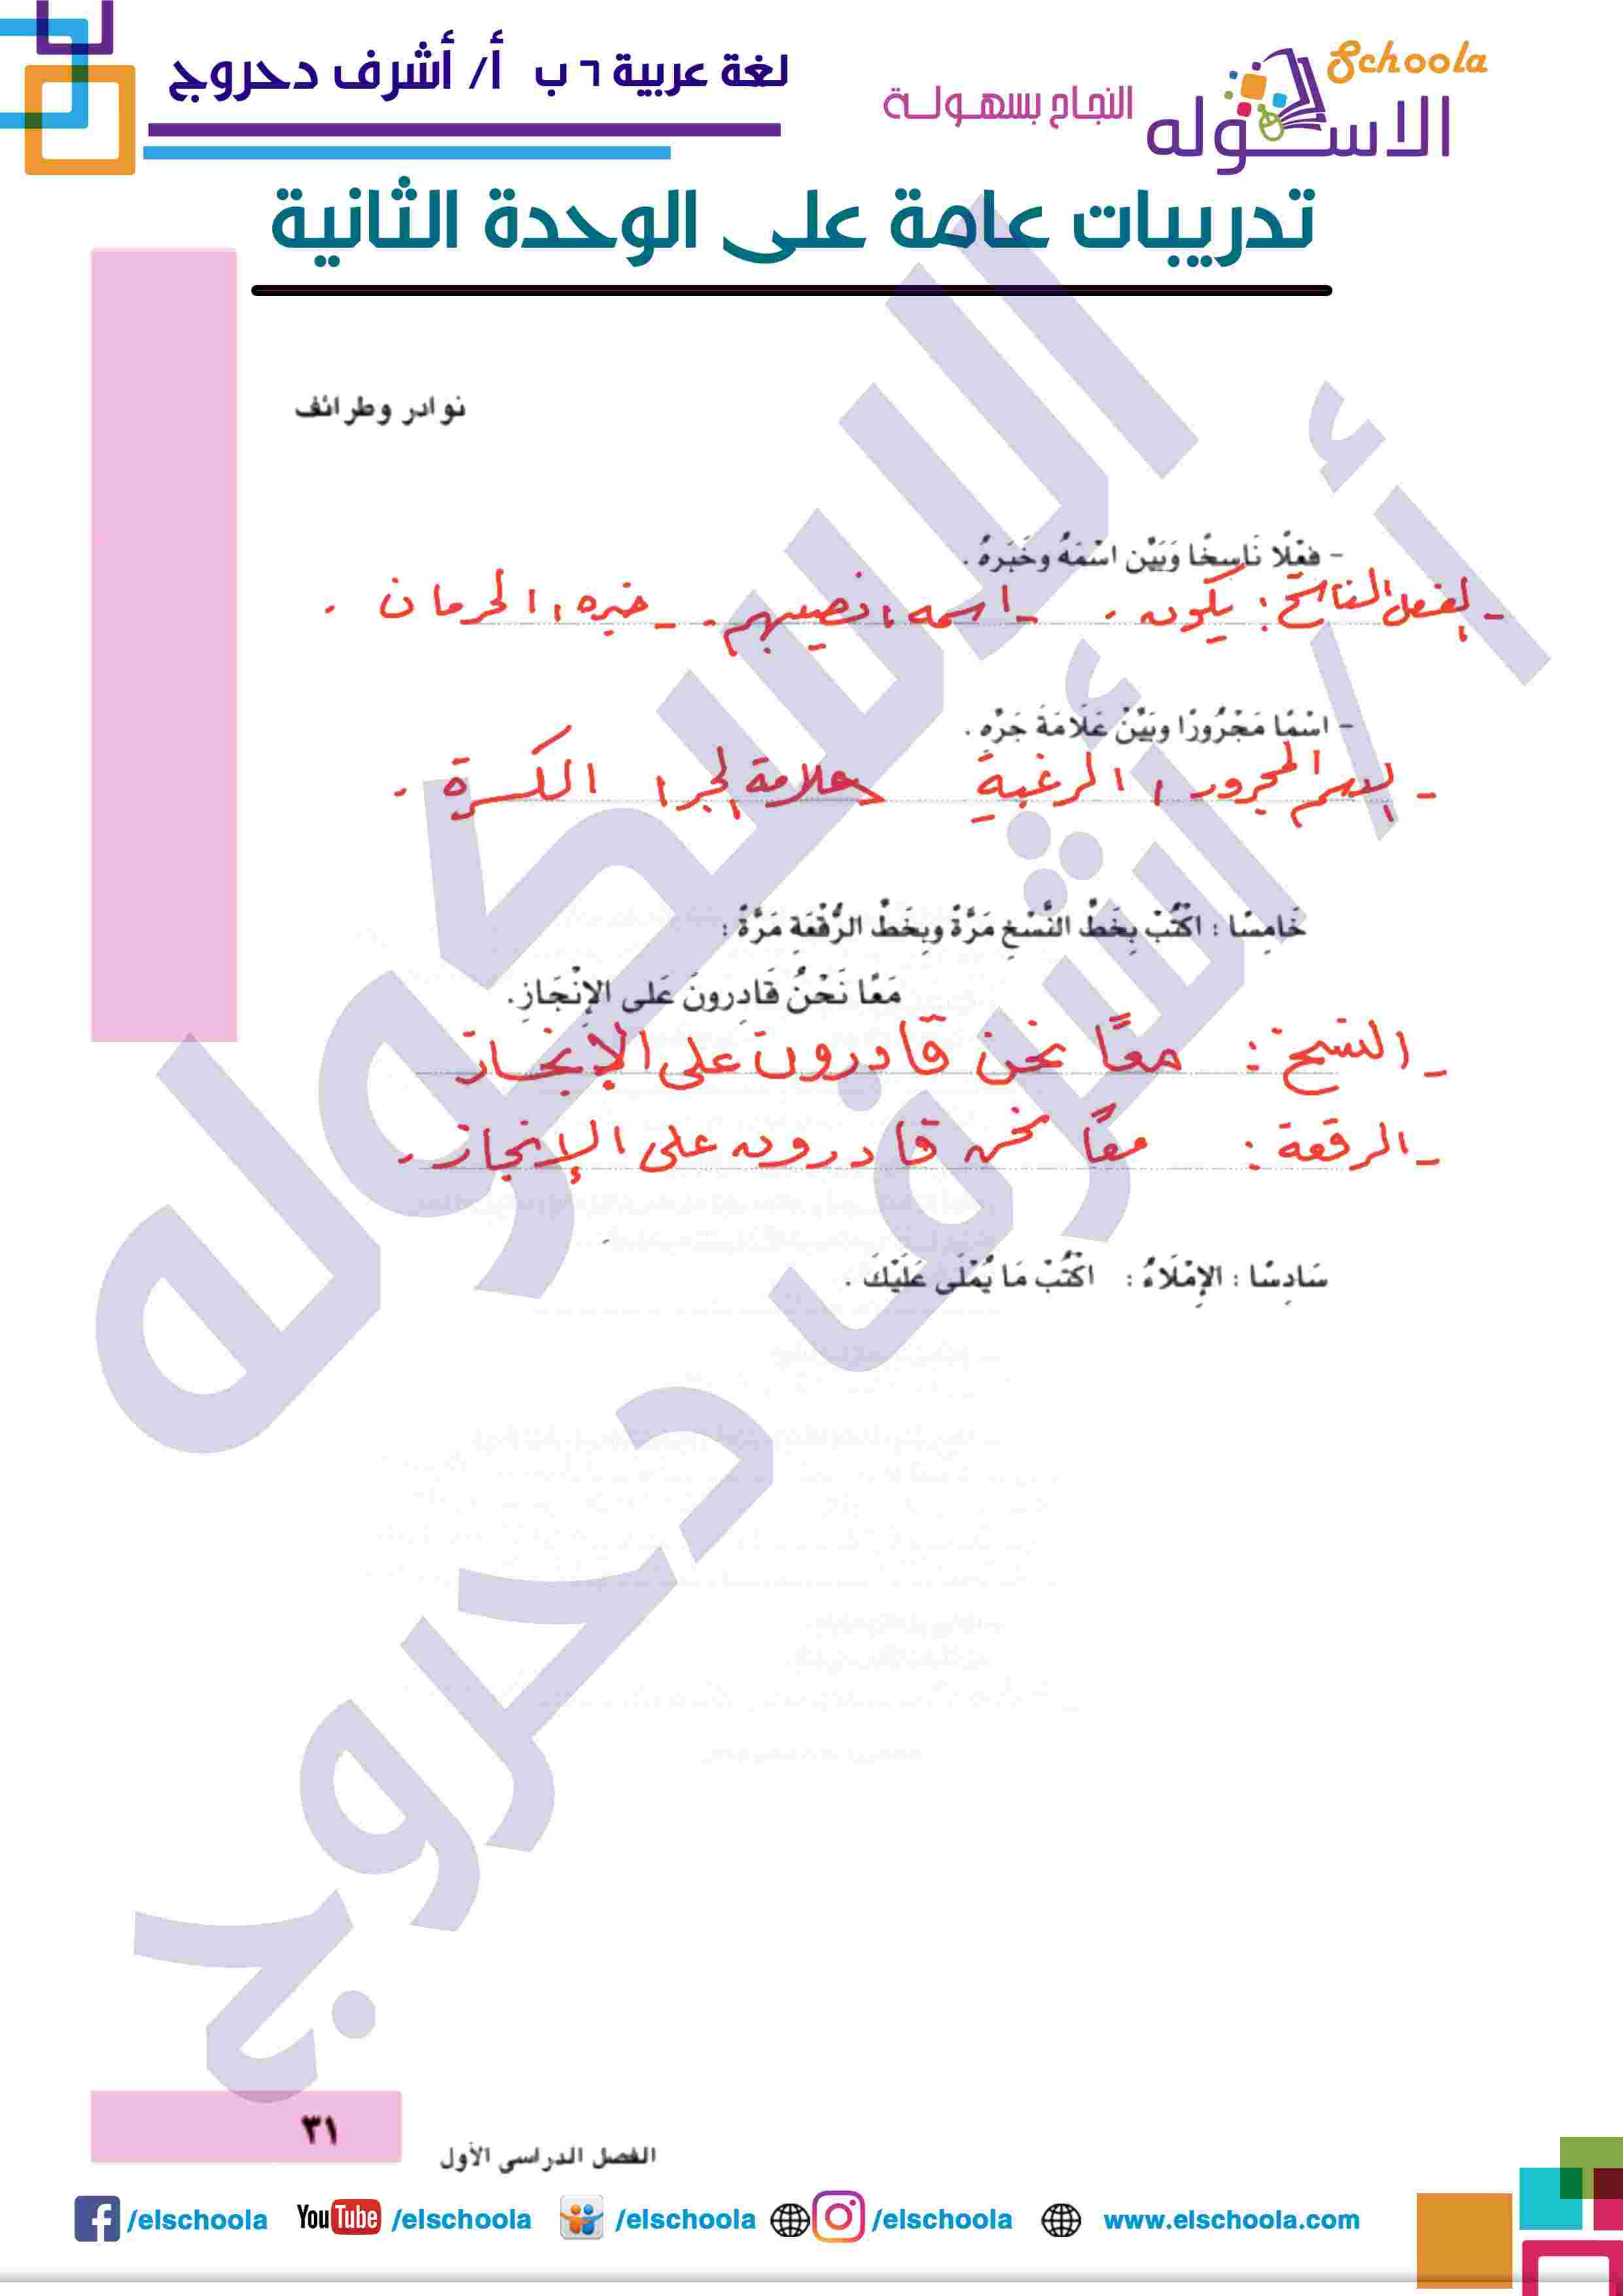 لغة عربية ٦ ب أ/ أشرف دحروج
Schoola
الاسكوله
النجاح بسهولة
تدريبات عامة على الوحدة الثانية
نوادر وطرائف
- فِعْلًا نَاسِخًا وَبَيِّن اسْمَهُ وخَبَرَهُ .
- الفعل الناسخ : يكون . - اسمه : نصيبهم . - خبره : الحرمان .
- اسْمًا مَجْرُورًا وبَيِّنْ عَلَامَةَ جَرِّهِ .
- الاسم المجرور : الرغبة علامة الجر : الكسرة .
خَامِسًا : اكْتُبْ بِخَطِّ النَّسْخِ مَرَّةً وبِخَطِّ الرُّقْعَةِ مَرَّةً :
مَعًا نَحْنُ قَادِرونَ عَلى الإِنْجَازِ.
- النسخ : معًا نحن قادرون على الإنجاز
- الرقعة : معًا نحن قادرون على الإنجاز .
سَادِسًا : الإِمْلَاءُ : اكْتُبْ مَا يُمْلَى عَلَيْكَ .
الاسكوله
أ / أشرف دحروج
٣١
الفصل الدراسي الأول
/elschoola YouTube /elschoola /elschoola /elschoola www.elschoola.com